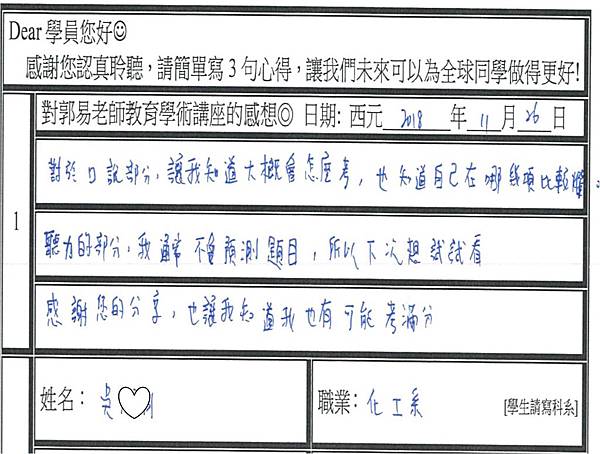 Dear 學員您好☺
感謝您認真聆聽，請簡單寫 3 句心得，讓我們未來可以為全球同學做得更好!
1
對郭易老師教育學術講座的感想◎ 日期: 西元 2018 年 11 月 26 日
對於口說部分，讓我知道大概會怎麼考，也知道自己在哪幾項比較
聽力的部分，我通常不會預測題目，所以下次想試試看
感謝您的分享，也讓我知道我也有可能考滿分
姓名: 吳
職業: 化工系 [學生請寫科系]